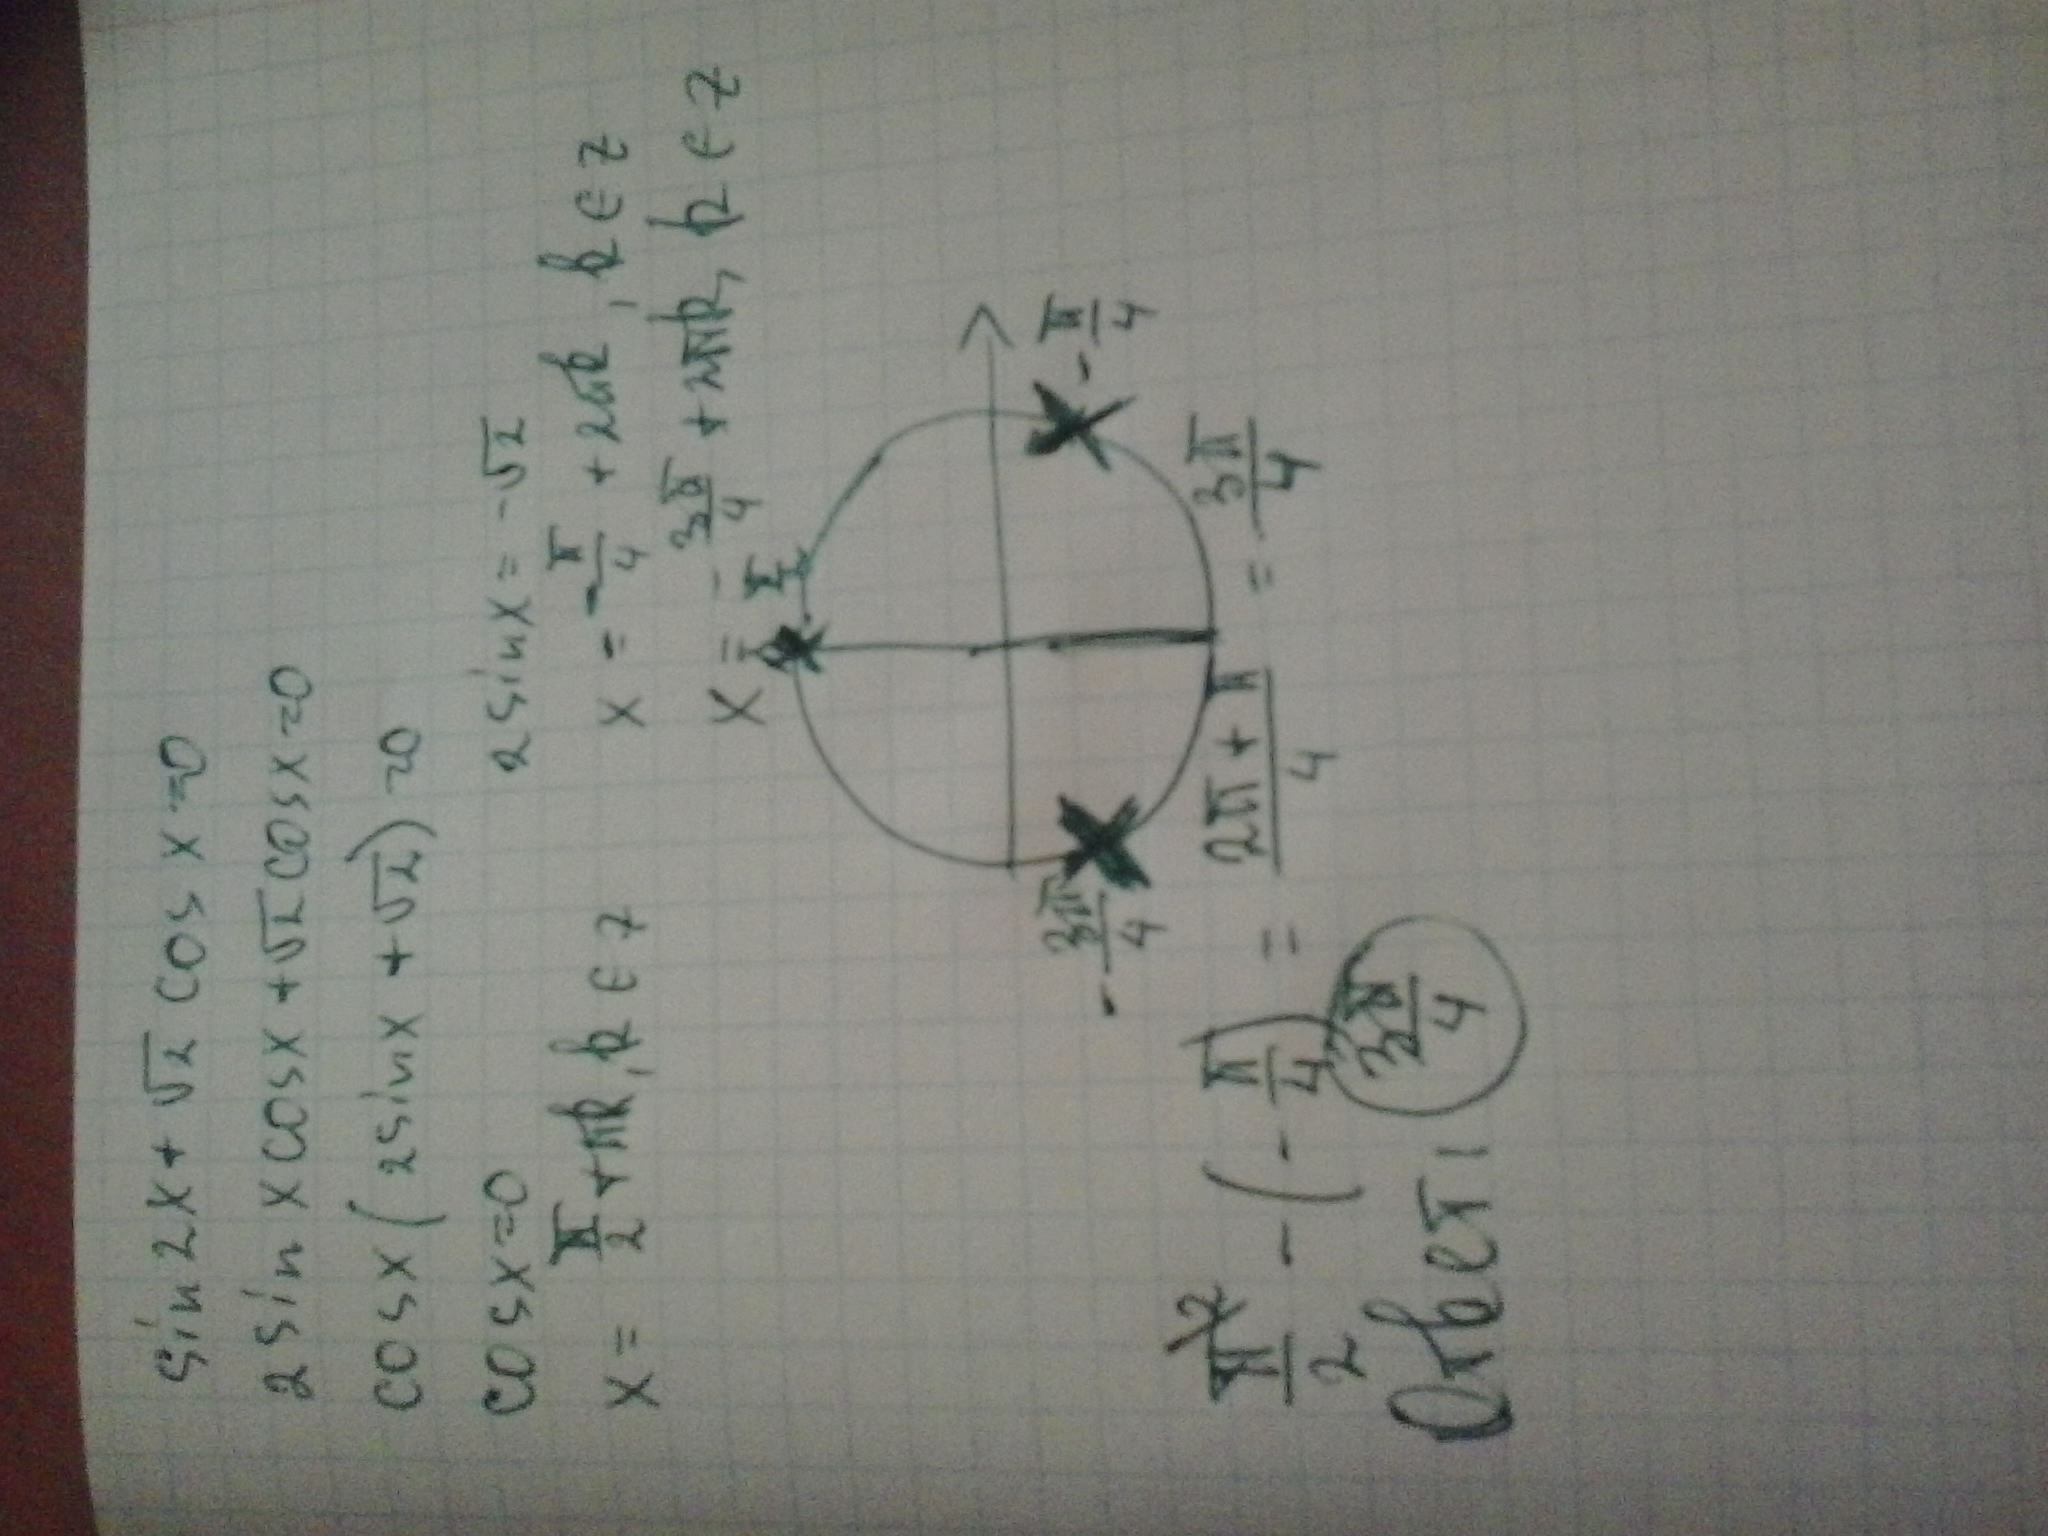 sin2x+√2 cosx=0
2sinxcosx+√2cosx=0
cosx(2sinx+√2)=0
cosx=0 2sinx=-√2
x=π/2+πk, k∈z x=-π/4+2πk, k∈z
x=-3π/4+2πk, k∈z
π/2
-3π/4 -π/4
π\2/2-(-π/4)=2π+π/4=3π/4
Ответ: 3π/4